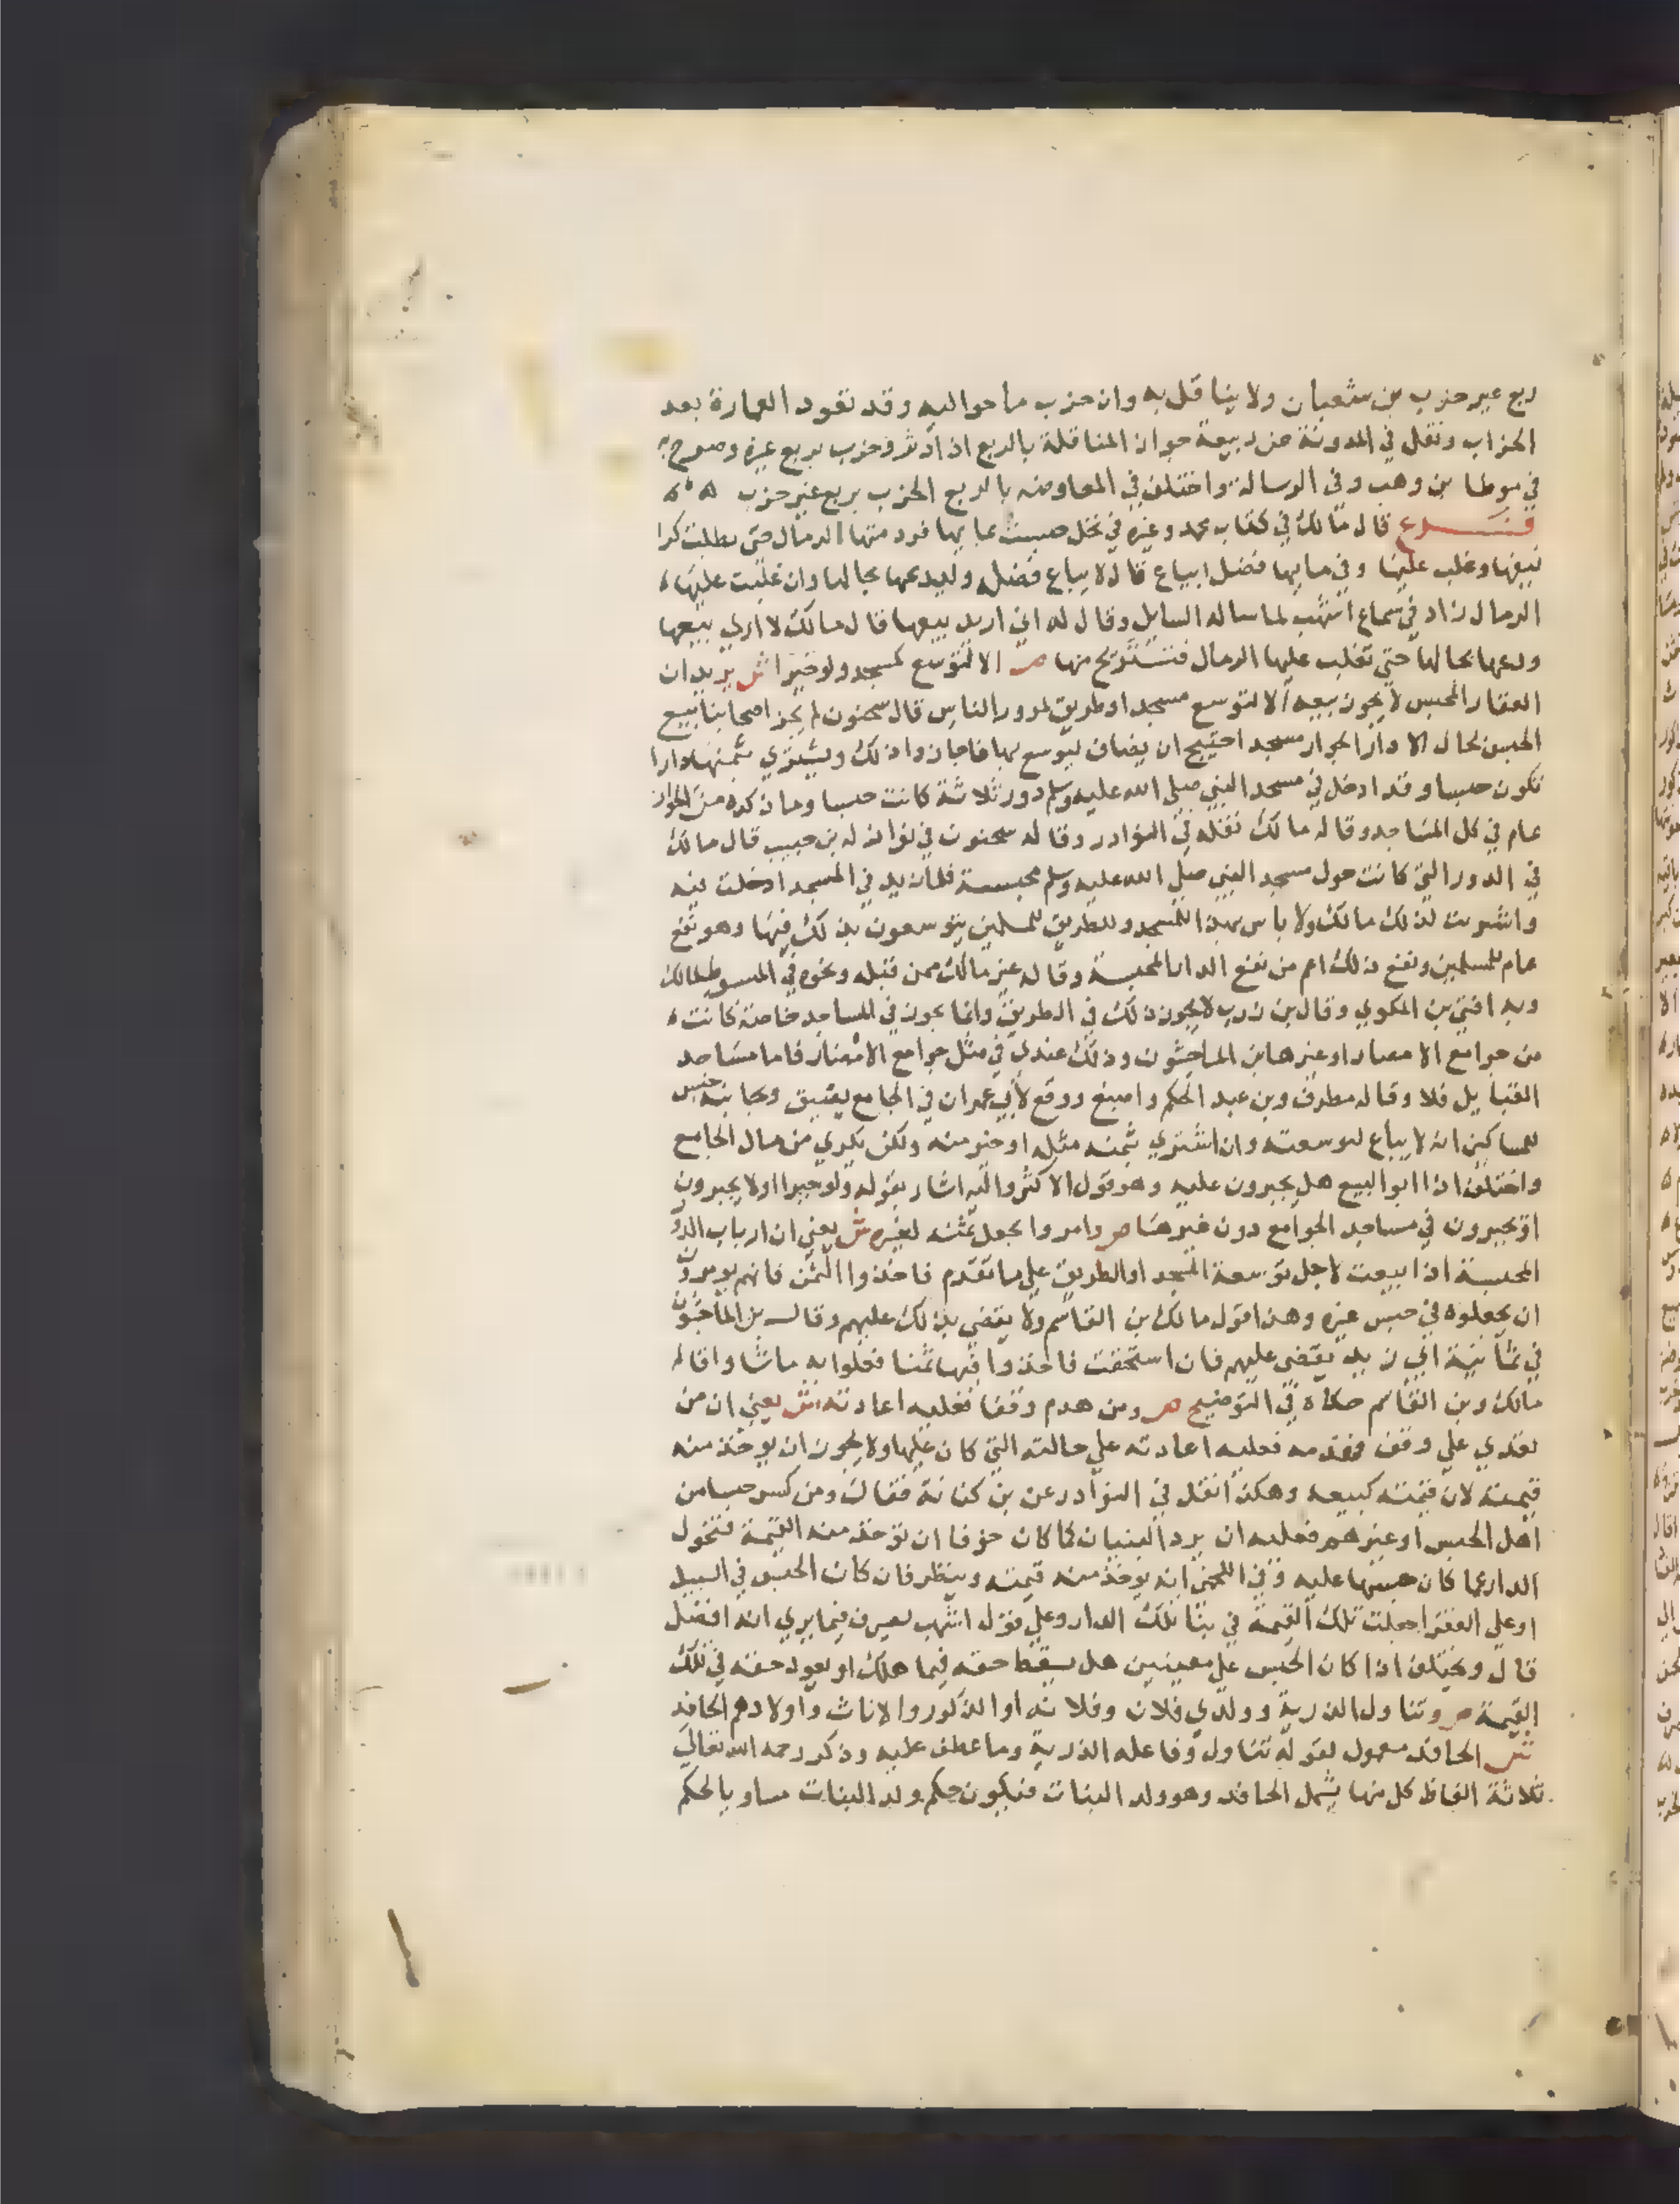 ربع غير خرب بن شعبان ولا يناقل به وان خرب ما حواليه وقد تعود العمارة بعد
الخراب ونقل في المدونة عن ربيعة جواز المناقلة بالربع اذا دثر وخرب بربع غيره وصرح به
في موطا بن وهب وفي الرسالة واختلف في المعاوضه بالربع الخرب بربع غير خرب
فــــرع قال مالك في كتاب محمد وغيره في نخل حبست بما يها فردمتها الرمال حتى بطلت كرا
نيعها وغلب عليها وفي مايها فضل ايباع قال لا يباع فضله وليدعها بحالها وان غلبت عليها
الرمال زاد في سماع اشهب لما ساله السايل وقال له اني اريد بيعها قال مالك لا اري بيعها
ودعها بحالها حتي تغلب عليها الرمال فتستريح منها ص الا لتوسع كمسجد ولو جبرا ش يريد ان
العقار المحبس لا يجوز بيعه الا لتوسع مسجد او طريق لمرور الناس قال سحنون لم يجز اصحابنا بيع
الحبس بحال الا دارا بجوار مسجد احتيج ان يضاف ليوسع بها فاجازوا ذلك ويشتري بثمنها دارا
تكون حبسا وقد ادخل في مسجد النبي صلي الله عليه وسلم دور ثلاثة كانت حبسا وما ذكره من الجواز
عام في كل المساجد وقاله مالك نقله في النوادر وقاله سحنون في نوازله بن حبيب قال مالك
في الدور التي كانت حول مسجد النبي صلي الله عليه وسلم محبسة فلما زيد في المسجد ادخلت فيه
واشتريت لذلك مالك ولا باس بهذا للمسجد وللطريق للمسلمين يتوسعون بذلك فيها وهو نفع
عام للمسلمين ونفع ذلك اعم من نفع الدار المحبسة وقاله غير مالك ممن قبله ونحوه في المبسوط لمالك
وبه افتي بن المكوي وقال بن زرب لا يجوز ذلك في الطريق وانما يجوز في المساجد خاصة كانت
من جوامع الامصار او غيرها بن الماجشون وذلك عندي في مثل جوامع الامصار فاما مساجد
القبايل فلا وقاله مطرف وبن عبد الحكم واصبغ ووقع لابي عمران في الجامع يضيق وبجانبه حبس
للمساكين انه لا يباع لتوسعته وان اشتري بثمنه مثله او خير منه ولكن يكري من مال الجامع
واختلف اذا ابوا البيع هل يجبرون عليه وهو قول الاكثر واليه اشار بقوله ولو جبرا او لا يجبرون
او يجبرون في مساجد الجوامع دون غيرها ص وامروا بجعل ثمنه لغيره ش يعني ان ارباب الدور
المحبسة اذا بيعت لاجل توسعة المسجد او الطريق علي ما تقدم فاخذوا الثمن فانهم يومرون
ان يجعلوه في حبس غيره وهذا قول مالك بن القاسم ولا يقضي بذلك عليهم وقال بن الماجشون
في ثمانية ابي زيد يقضي عليهم فان استحقت فاخذوا فيها ثمنا فعلوا به ماشاوا قاله
مالك وبن القاسم حكاه في التوضيح ص ومن هدم وقفا فعليه اعادته ش يعني ان من
تعدي علي وقف فهدمه فعليه اعادته علي حالته التي كان عليها ولا يجوز ان يوخذ منه
قيمته لان قيمته كبيعه وهكذا نقل في النوادر عن بن كنانة فقال ومن كسر حبسا من
اهل الحبس او غيرهم فعليه ان يرد البنيان كما كان خوفا ان توخذ منه القيمة فتحول
الدار عما كان حبسها عليه وفي اللخمي انه يوخذ منه قيمته وينظر فان كان الحبس في السبيل
او علي الفقرا جعلت تلك القيمة في بنا تلك الدار وعلي قول اشهب تصرف فيما يري انه افضل
قال ويختلف اذا كان الحبس علي معينين هل يسقط حقه فيما هلك او يعود حقه في تلك
القيمة ص وتناول الذرية وولدي فلان وفلانه او الذكور والاناث واولادهم الحافد
ش الحافد معمول لقوله تناول وفاعله الذرية وما عطف عليه وذكر رحمه الله تعالي
ثلاثة الفاظ كل منها يشمل الحافد وهو ولد البنات فيكون حكم ولد البنات مساو بالحكم